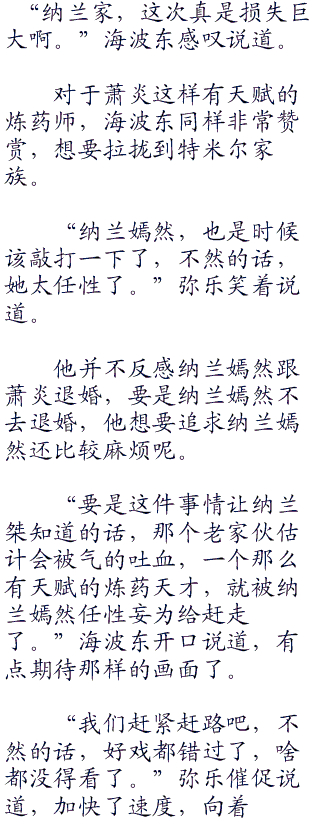 “纳兰家，这次真是损失巨
大啊。”海波东感叹说道。
对于萧炎这样有天赋的
炼药师，海波东同样非常赞
赏，想要拉拢到特米尔家
族。
“纳兰嫣然，也是时候
该敲打一下了，不然的话，
她太任性了。”弥乐笑着说
道。
他并不反感纳兰嫣然跟
萧炎退婚，要是纳兰嫣然不
去退婚，他想要追求纳兰嫣
然还比较麻烦呢。
“要是这件事情让纳兰
桀知道的话，那个老家伙估
计会被气的吐血，一个那么
有天赋的炼药天才，就被纳
兰嫣然任性妄为给赶走
了。”海波东开口说道，有
点期待那样的画面了。
“我们赶紧赶路吧，不
然的话，好戏都错过了，啥
都没得看了。”弥乐催促说
道，加快了速度，向着